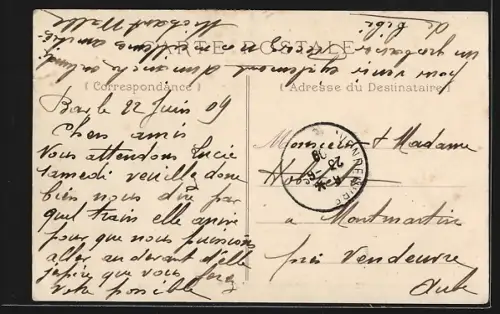 CARTE POSTALE
( Correspondance )
( Adresse du Destinataire )
Bar le 22 Juin 09
Chers amis
Vous attendons Lucie
Samedi veuillez donc
bien nous dire par
quel train elle arrive
pour que nous puissions
aller au devant d'elle
j'espère que vous ferez
votre possible
pour venir également dimanche
un
de Bibi
recevez
Monsieur & Madame
à Montmartin
près Vendeuvre
Aube
VENDEUVRE
23 -6
09